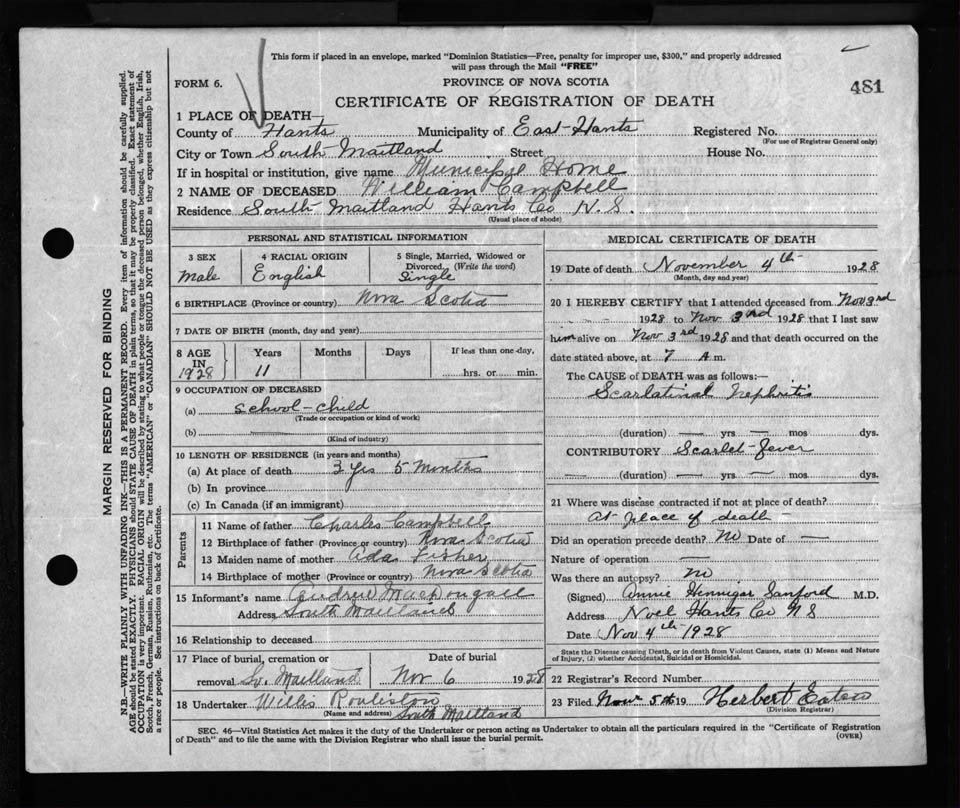 This form if placed in an envelope, marked "Dominion Statistics—Free, penalty for improper use, $300," and properly addressed
will pass through the Mail "FREE"
FORM 6.
PROVINCE OF NOVA SCOTIA
481
CERTIFICATE OF REGISTRATION OF DEATH
1 PLACE OF DEATH—
County of Hants Municipality of East-Hants Registered No.
(For use of Registrar General only)
City or Town South Maitland Street House No.
If in hospital or institution, give name Municipal Home
2 NAME OF DECEASED William Campbell
Residence South Maitland Hants Co N.S.
(Usual place of abode)
PERSONAL AND STATISTICAL INFORMATION
3 SEX 4 RACIAL ORIGIN 5 Single, Married, Widowed or
Divorced, (Write the word)
Male English Single
6 BIRTHPLACE (Province or country) Nova Scotia
7 DATE OF BIRTH (month, day and year)
8 AGE IN 1928 Years Months Days If less than one-day,
11 hrs. or min.
9 OCCUPATION OF DECEASED
(a) School-child
(Trade or occupation or kind of work)
(b) —
(Kind of industry)
10 LENGTH OF RESIDENCE (in years and months)
(a) At place of death 3 yrs 5 months
(b) In province
(c) In Canada (if an immigrant)
Parents
11 Name of father Charles Campbell
12 Birthplace of father (Province or country) Nova Scotia
13 Maiden name of mother Ada Fisher
14 Birthplace of mother (Province or country) Nova Scotia
15 Informant's name Andrew MacDougall
Address South Maitland
16 Relationship to deceased
17 Place of burial, cremation or Date of burial
removal So. Maitland Nov 6 1928
18 Undertaker Willis Rouliston
(Name and address) South Maitland
MEDICAL CERTIFICATE OF DEATH
19 Date of death November 4th 1928
(Month, day and year)
20 I HEREBY CERTIFY that I attended deceased from Nov 3rd
1928 to Nov 3rd 1928 that I last saw
him alive on Nov 3rd 1928 and that death occurred on the
date stated above, at 7 A.m.
The CAUSE of DEATH was as follows:—
Scarlatinal Nephritis
(duration) — yrs — mos dys.
CONTRIBUTORY Scarlet-Fever
(duration) — yrs — mos dys.
21 Where was disease contracted if not at place of death?
At place of death
Did an operation precede death? No Date of —
Nature of operation —
Was there an autopsy? No
(Signed) Annie Hennigar Sanford M.D.
Address Noel Hants Co N S
Date Nov 4th 1928
State the Disease causing Death, or in death from Violent Causes, state (1) Means and Nature
of Injury, (2) whether Accidental, Suicidal or Homicidal.
22 Registrar's Record Number
23 Filed Nov 5th 19 Herbert
(Division Registrar)
SEC. 46—Vital Statistics Act makes it the duty of the Undertaker or person acting as Undertaker to obtain all the particulars required in the "Certificate of Registration
of Death" and to file the same with the Division Registrar who shall issue the burial permit. (OVER)
MARGIN RESERVED FOR BINDING
N.B.—WRITE PLAINLY WITH UNFADING INK—THIS IS A PERMANENT RECORD. Every item of information should be carefully supplied.
AGE should be stated EXACTLY. PHYSICIANS should STATE CAUSE OF DEATH in plain terms, so that it may be properly classified. Exact statement of
OCCUPATION is very important. RACIAL ORIGIN will be described by stating to what people or tongue the deceased person belonged, whether English, Irish,
Scotch, French, German, Russian, Ruthenian, etc. The terms "AMERICAN" or "CANADIAN" SHOULD NOT BE USED as they express citizenship but not
a race or people. See instructions on back of Certificate.